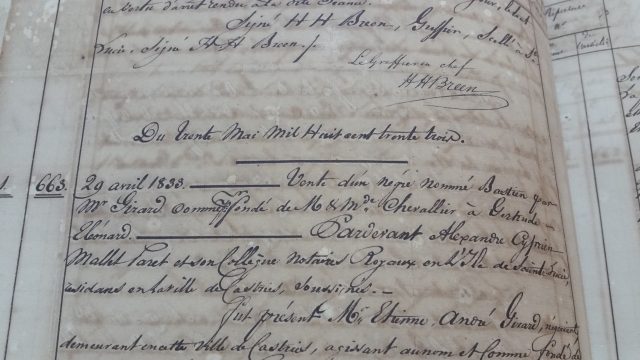 en vertu d'arrêt rendu à la
Signé H H Breen, Greffier, Scellé à Ste
Lucie, Signé H H Breen /.
Le Greffier en chef
H H Breen
Du trente Mai Mil Huit cent trente trois.
1. 663. 29 avril 1833. Vente d'un nègre nommé Bastien par
Mr Girard comme fondé de M & Mde Chevallier à Gertrude
Eléonard. Pardevant Alexandre Cyprien
Mallet Paret et son Collègue notaires Royaux en l'Ile de Sainte Lucie,
résidans en la ville de Castries, soussignés
Fut présent Mr Etienne, André Girard, négociant
demeurant en cette Ville de Castries, agissant au nom et comme fondé de